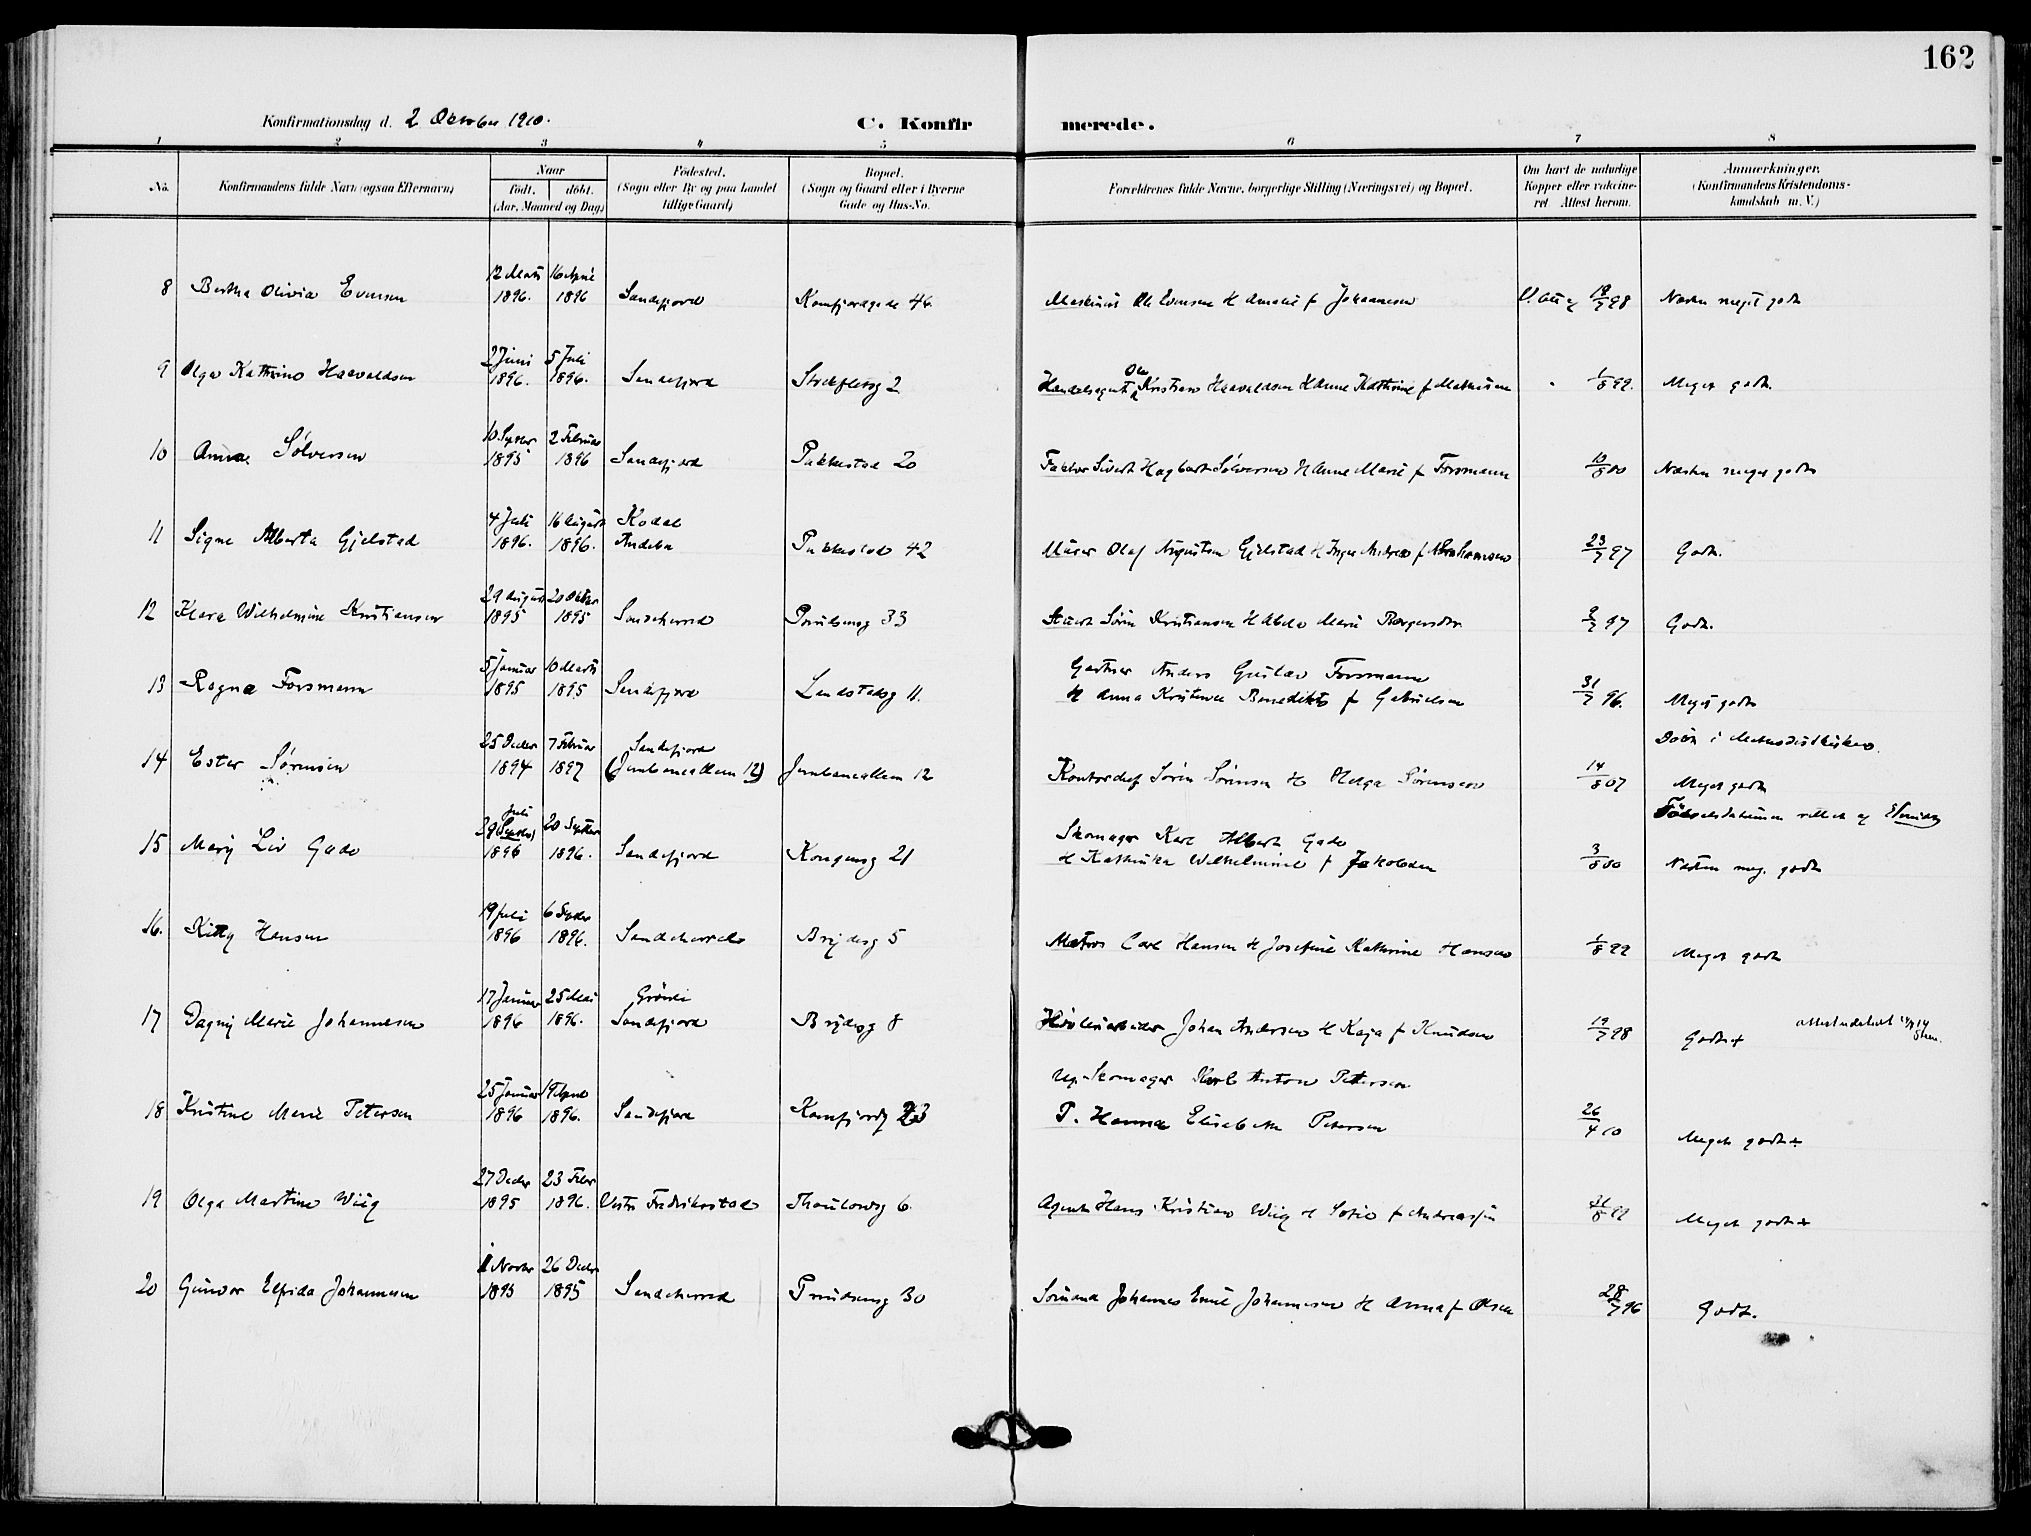 162
Konfirmationsdag d. 2 Oktober 1910.
C. Konfirmerede.
1 2 3 4 5 6 7 8
No. Konfirmandens fulde Navn (ogsaa Efternavn) Naar født. døbt. (Aar, Maaned og Dag) Fødested. (Sogn eller By og paa Landet tillige Gaard) Bopæl. (Sogn og Gaard eller i Byerne Gade og Hus-No. Forældrenes fulde Navne, borgerlige Stilling (Næringsvei) og Bopæl. Om havt de naturlige Kopper eller vakcineret Attest herom. Anmerkninger. (Konfirmandens Kristendomskundskab m. V.)
8 Bertha Olivia Evensen 12 Marts 1896. 16 April 1896 Sandefjord Kamfjordgade 46 Maskinist Ole Evensen H Amalie f Johannesen 19/7 98 Næsten meget godt
9 Olga Kathrine Haavaldsen 2 Juni 1896. 5 Juli 1896. Sandefjord 2 Handelsagent Ole Kristian Haavaldsen H Anne Kathrine f Mathisen 1/8 99. Meget godt.
10 Anna Sølversen 10 Septbr 1895 2 Februar 1896 Sandefjord Pukkestad 20 Faktor Sivert Hagbart Sølversen H Anne Marie f Forsmann 10/8 00 Næsten meget godt
11 Signe Alberta Gjelstad 4 Juli 1896. 16 August 1896. Kodal Andebu Pukkestad 42 Murer Olaf Augustsen Gjelstad H Inger Andrea f Abrahamsen 23/7 97 Godt.
12 Klara Wilhelmine Kristiansen 29 August 1895 20 Oktbr 1895 Sandeherred Prindsensg 33 Stuert Søren Kristiansen H Abela Marie Borgersdtr 97 Godt.
13 Ragna Forsmann 5 Januar 1895 10 Marts 1895 Sandefjord Landstadsg 11. Gartner Anders Gustav Forsmann
H Anna Kristence Benedikte f Gabrielsen 31/7 96. Meget godt
14 Ester Sørensen 25 Decbr 1894 7 Februar 1897 Sandefjord (Jernbanealleen 12) Jernbanealleen 12 Kontorchef Søren Sørensen H Helga Sørensen 14/8 07 Døbt i Metodistkirken.
Meget godt
15 Mary Liv Gade 29 (Septbr) Juli 1896 20 Septbr 1896. Sandefjord Kongensg 21 Skomager Karl Albert Gade
H Kathinka Wilhelmine f Jakobsen 3/8 00 Fødselsdatumen rettet af
Næsten meg. godt
16. Kitty Hansen 19 Juli 1896 6 Septbr 1896. Sandeherred Brydesg 5 Matros Carl Hansen H Josefine Kathrine Hansen 1/8 99 Meget godt
17 Dagny Marie Johannesen 17 Januar 1896 25 Mai 1896. Grønli Sandefjord Brydesg 8 Høvleriarbeider Johan Andersen H Kaja f Knudsen 19/7 98 Godt+ attest udstedt
18 Kristine Marie Petersen 25 Januar 1896 19 April 1896. Sandefjord Kamfjordg 23 Up. Skomager Karl Anton Pettersen
P. Hanna Elisabeth Petersen 26/4 10 Meget godt+
19 Olga Martine Wiig 27 Decbr 1895 23 Febr 1896. Vestre Fredrikstad Thaulowsg 6. Agent Hans Kristian Wiig H Sofie f Andreassen 31/8 Meget godt+
20 Gunvor Elfrida Johannesen 1 Novbr 1895 26 Decbr 1895 Sandeherred Prindsensg 30 Sømand Johannes Emil Johannesen H Anna f Olsen 28/7 96 Godt.